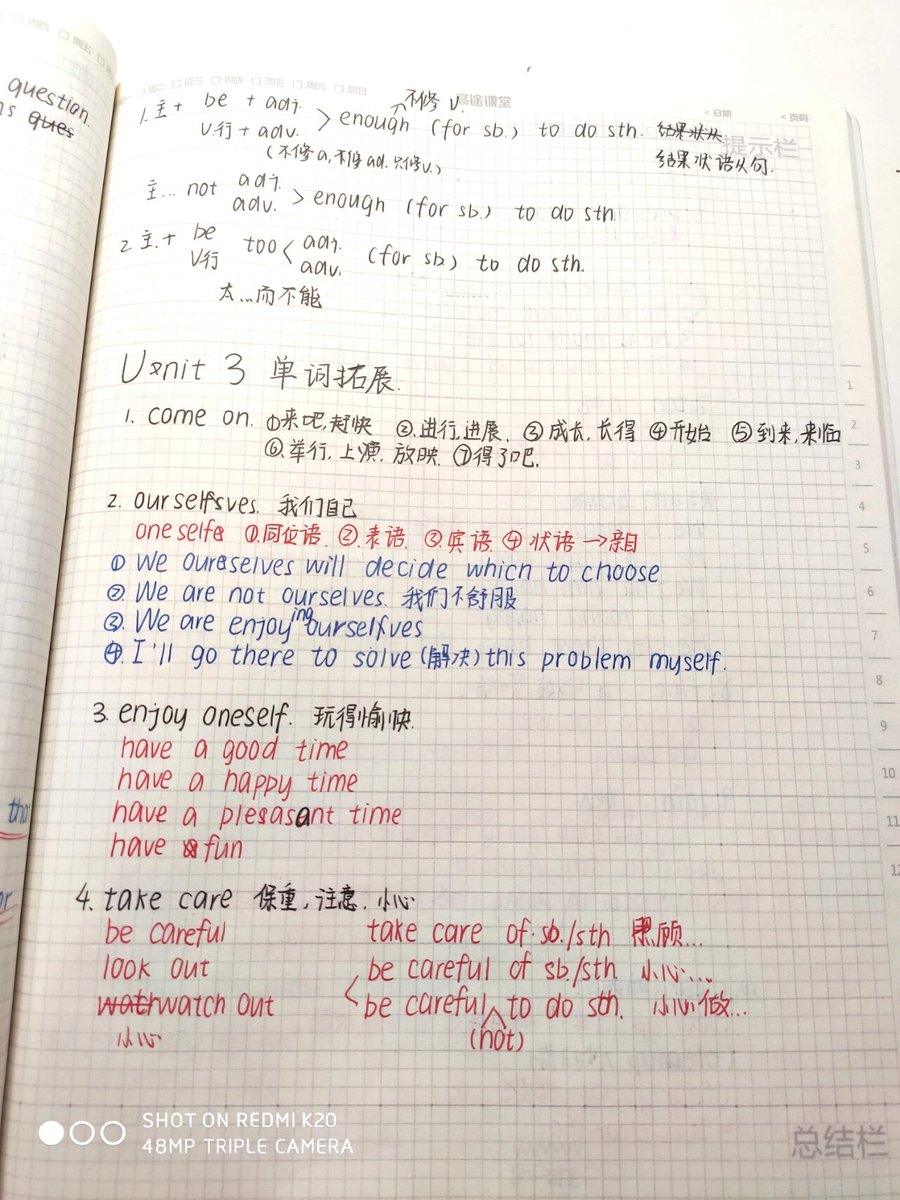 question.
ques
周四 周五
周二 周三 周四 周五 周六 周日
高途课堂
< 日期 < 页码
提示栏
不修 v.
1. 主 + be + adj.
V行 + adv. > enough (for sb.) to do sth. 结果状从
(不修a, 不修ad. 只修v.) 结果状语从句.
主... not adj. adv. > enough (for sb.) to do sth
2. 主. + be V行 too < adj. adv. (for sb.) to do sth.
太...而不能
Unit 3 单词拓展.
1. come on. ①来吧,赶快 ②.进行,进展. ③成长,长得 ④开始 ⑤到来,来临
⑥.举行,上演,放映. ⑦得了吧.
2. ourselves. 我们自己
oneself ①同位语. ②表语. ③宾语. ④状语→亲自
① We ourselves will decide which to choose
②. We are not ourselves. 我们不舒服
③. We are enjoying ourselves
④. I'll go there to solve (解决) this problem myself.
3. enjoy oneself. 玩得愉快.
have a good time
have a happy time
have a pleasant time
have fun
4. take care 保重,注意. 小心
be careful take care of sb./sth 照顾...
look out be careful of sb./sth 小心...
wat watch out be careful to do sth. 小心做...
小心 (not)
1
2
3
4
5
6
7
8
9
10
11
12
总结栏
SHOT ON REDMI K20
48MP TRIPLE CAMERA